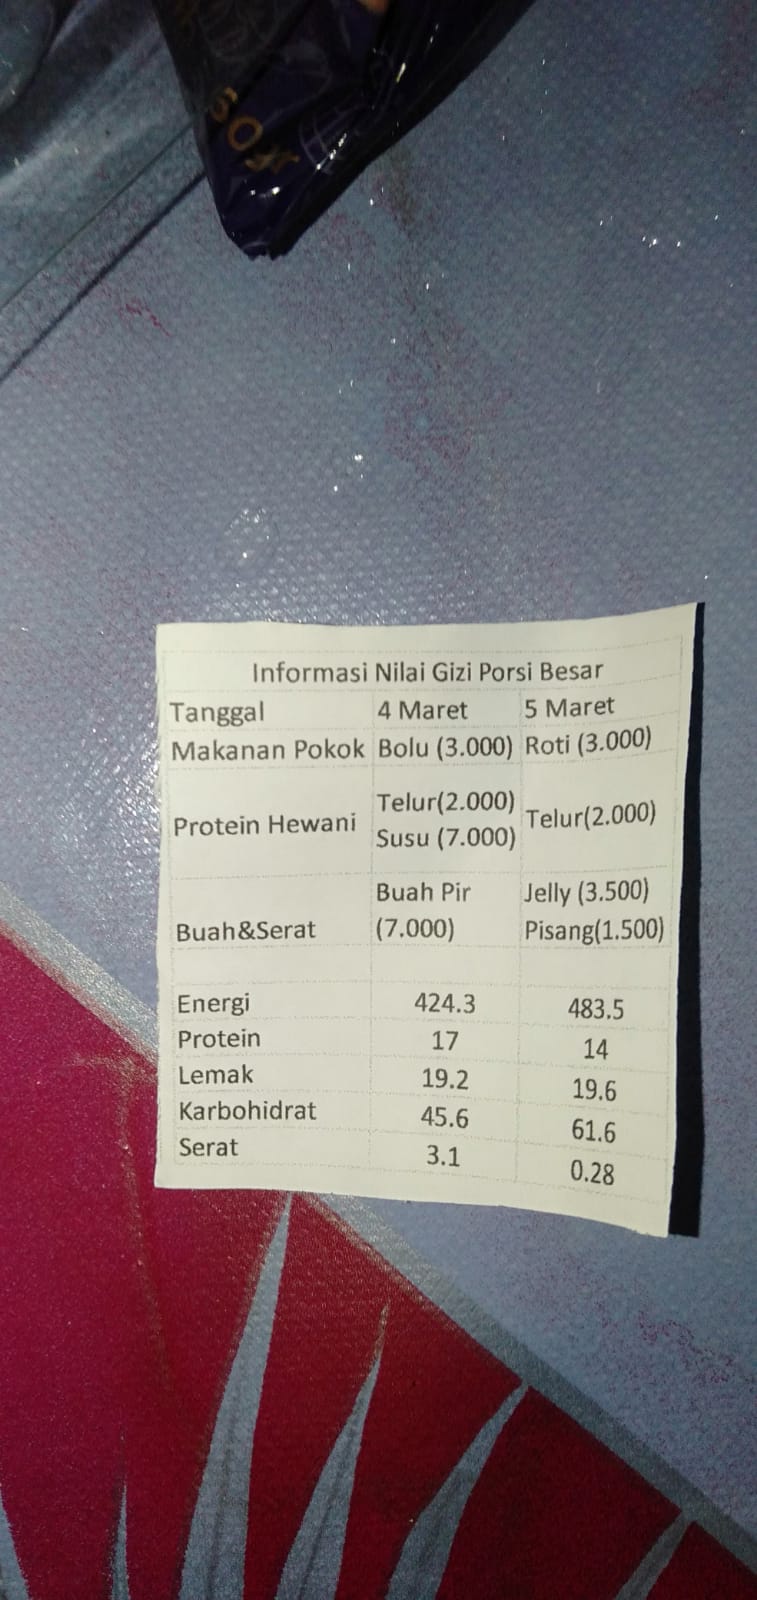 Informasi Nilai Gizi Porsi Besar
Tanggal 4 Maret 5 Maret
Makanan Pokok Bolu (3.000) Roti (3.000)
Protein Hewani Telur(2.000) Susu (7.000) Telur(2.000)
Buah&Serat Buah Pir (7.000) Jelly (3.500) Pisang(1.500)
Energi 424.3 483.5
Protein 17 14
Lemak 19.2 19.6
Karbohidrat 45.6 61.6
Serat 3.1 0.28